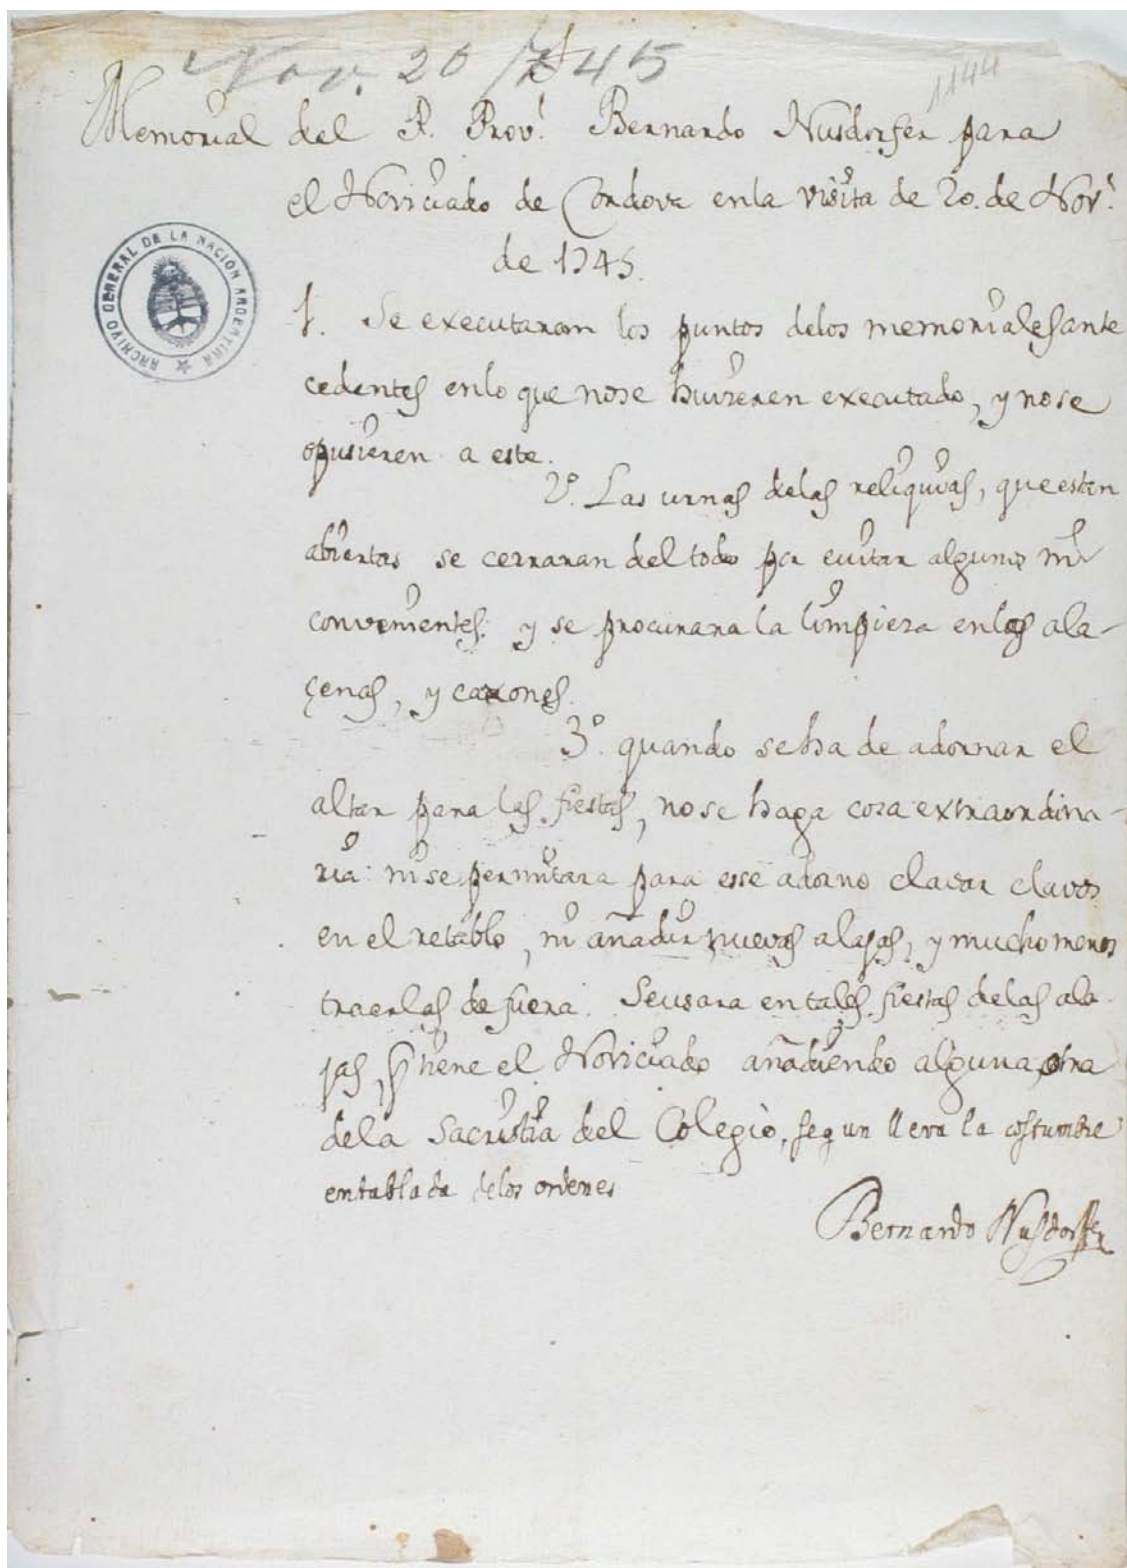 Nov. 20 / 745
1144
Memorial del P. Prov.l Bernardo Nusdorfer para
el Noviciado de Cordova enla visita de 20. de Nov.e
de 1745.
ARCHIVO GENERAL DE LA NACIÓN ARGENTINA
1. Se executaran los puntos delos memoriales ante
cedentes enlo que nose huvieren executado, y nose
opusieren a este.
2º. Las urnas delas reliquias, que estan
abiertas se cerraran del todo por evitar algunos in
convenientes: y se procurara la limpieza enlas ala-
çenas, y caxones.
3º. quando seha de adornar el
altar para las fiestas, nose haga cosa extraordina-
ria: ni se permitara para esse adorno clavar clavos
en el retablo, ni añadir nuevas alajas, y mucho menos
traerlas de fuera. Seusara en tales fiestas delas ala-
jas, q tiene el Noviciado añadiendo alguna otra
dela Sacristia del Colegio, segun lleva la costumbre
entablada delos ordenes
Bernardo Nusdorfer